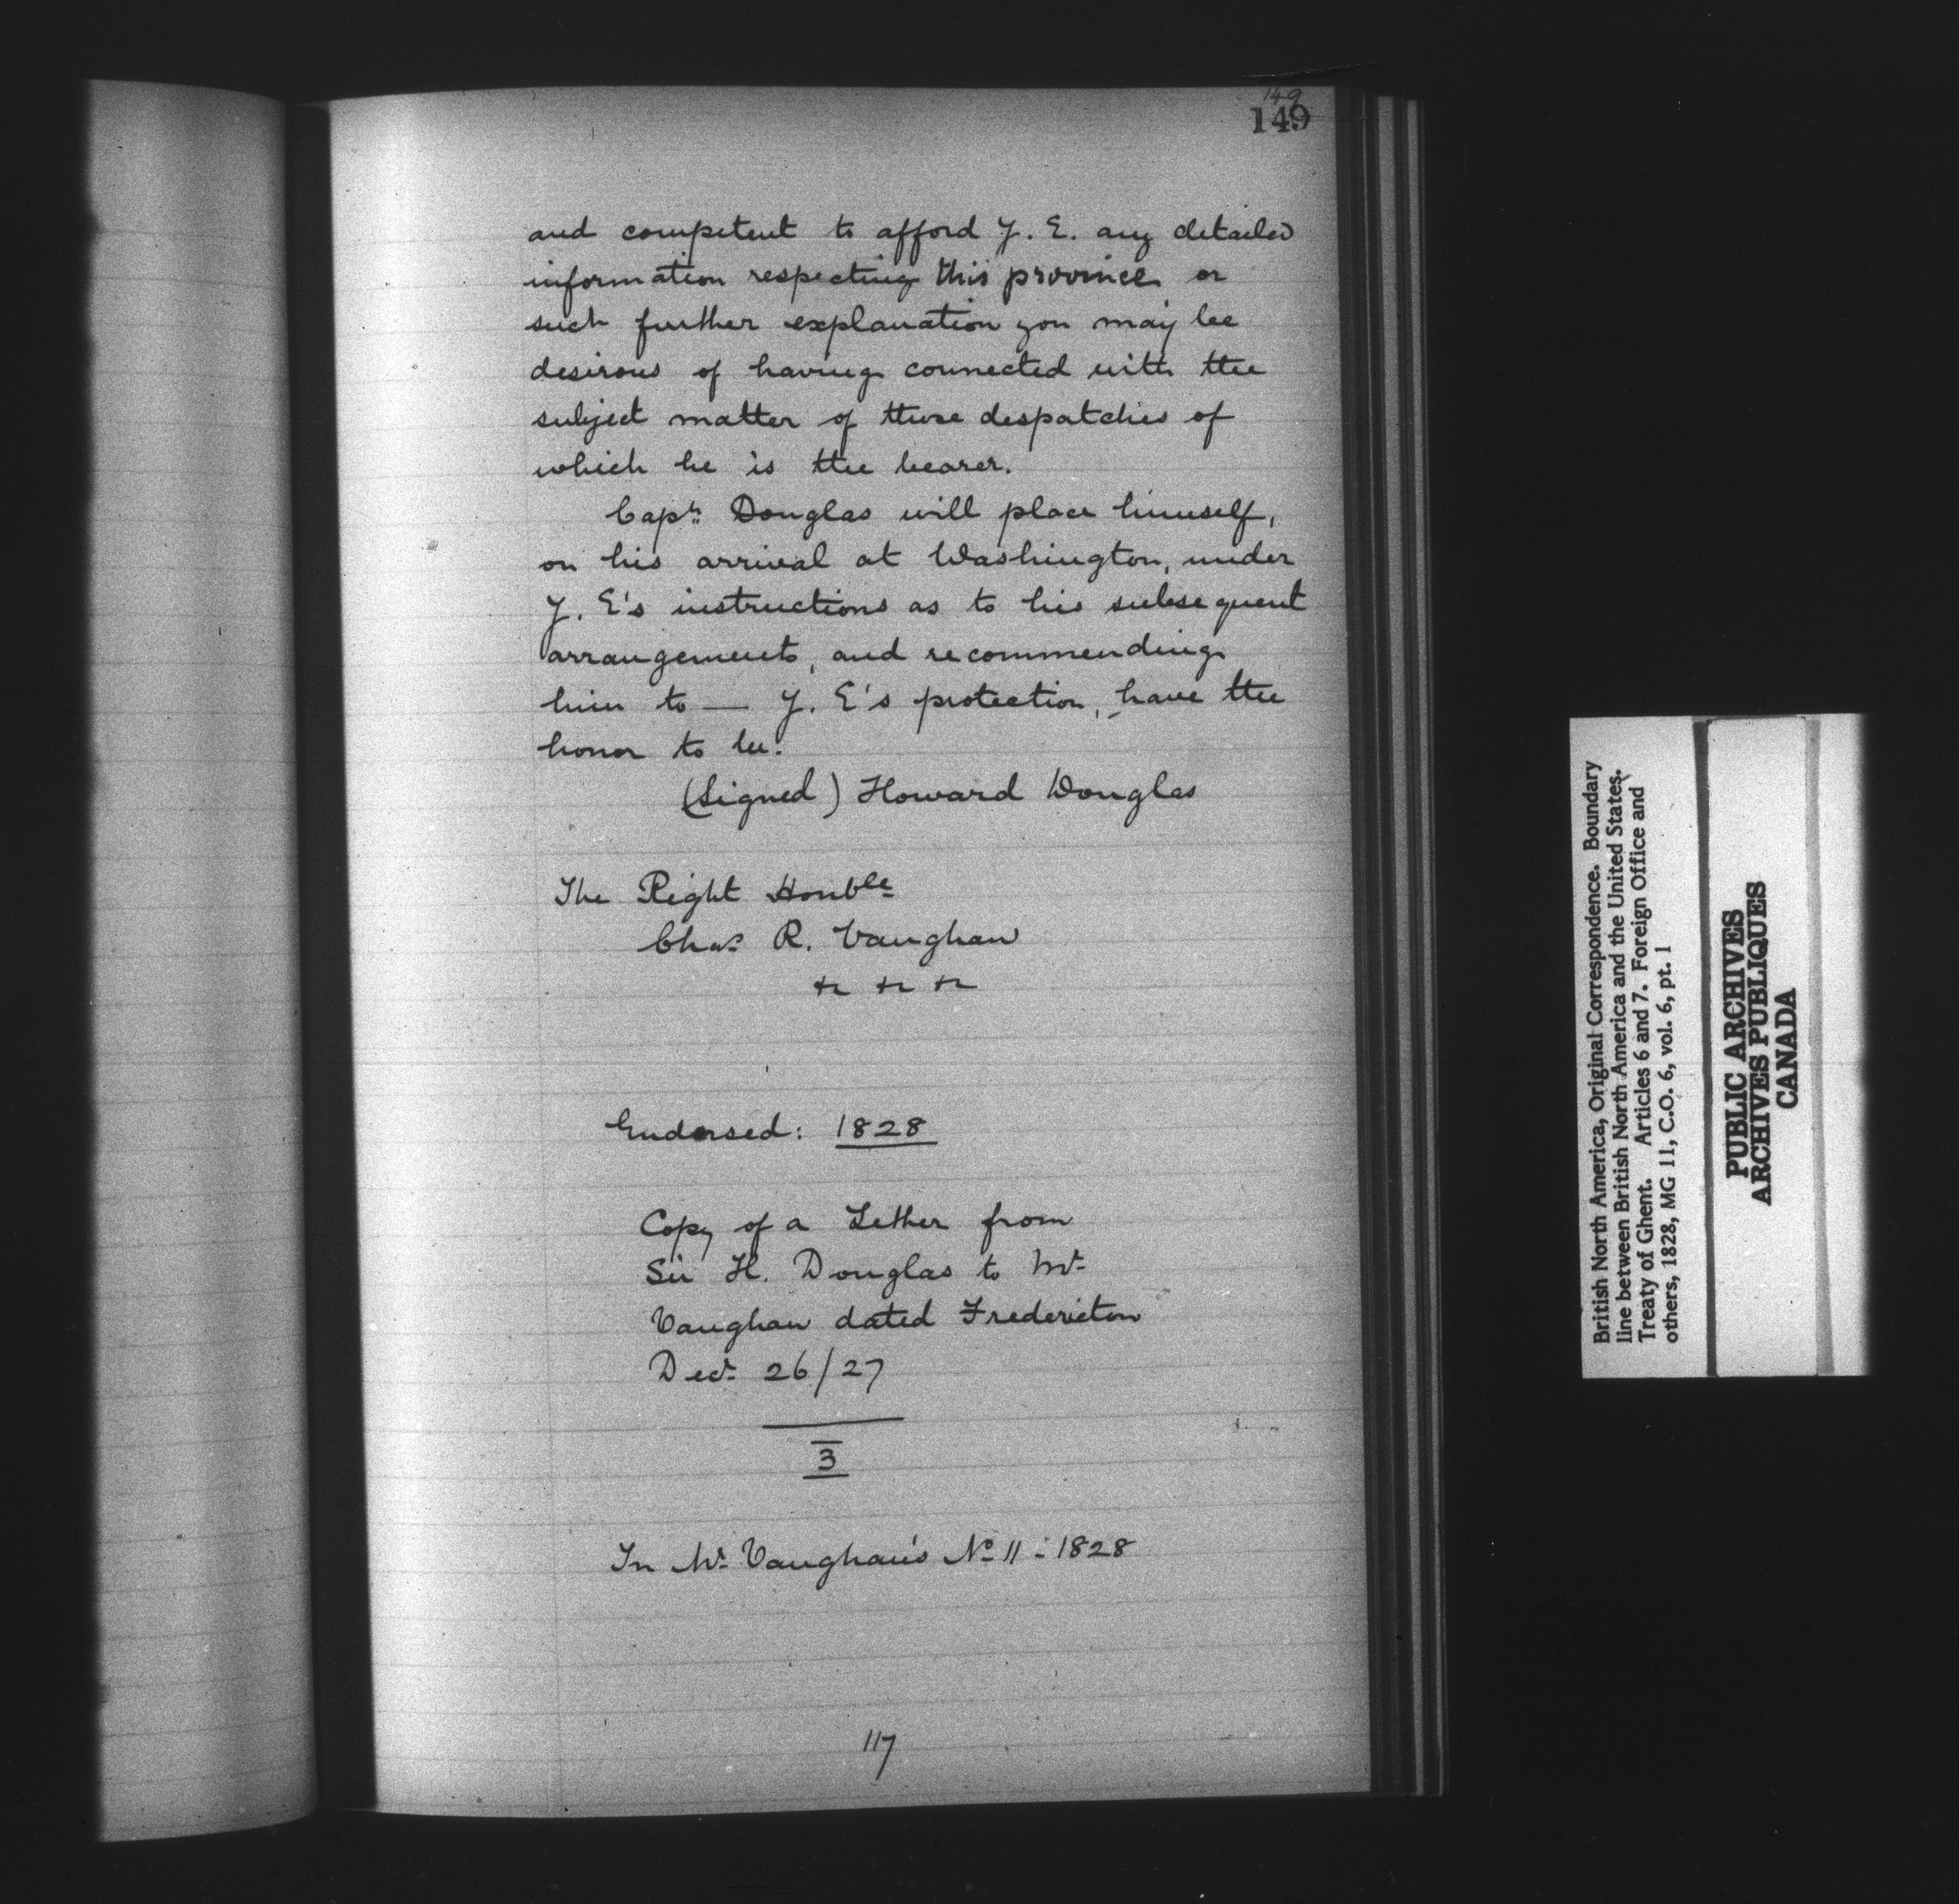 149
149
and competent to afford Y. E. any detailed
information respecting this province or
such further explanation you may be
desirous of having connected with the
subject matter of those despatches of
which he is the bearer.
Captn Douglas will place himself,
on his arrival at Washington, under
Y. E's instructions as to his subsequent
arrangements, and recommending
him to — Y. E's protection, have the
honor to be.
(Signed) Howard Douglas
The Right Honble
Chas R. Vaughan
Endorsed: 1828
Copy of a Letter from
Sir H. Douglas to Mr
Vaughan dated Fredericton
Decr 26/27
3
In Mr Vaughan's No 11 - 1828
117
British North America, Original Correspondence. Boundary
line between British North America and the United States.
Treaty of Ghent. Articles 6 and 7. Foreign Office and
others, 1828, MG 11, C.O. 6, vol. 6, pt. 1
PUBLIC ARCHIVES
ARCHIVES PUBLIQUES
CANADA